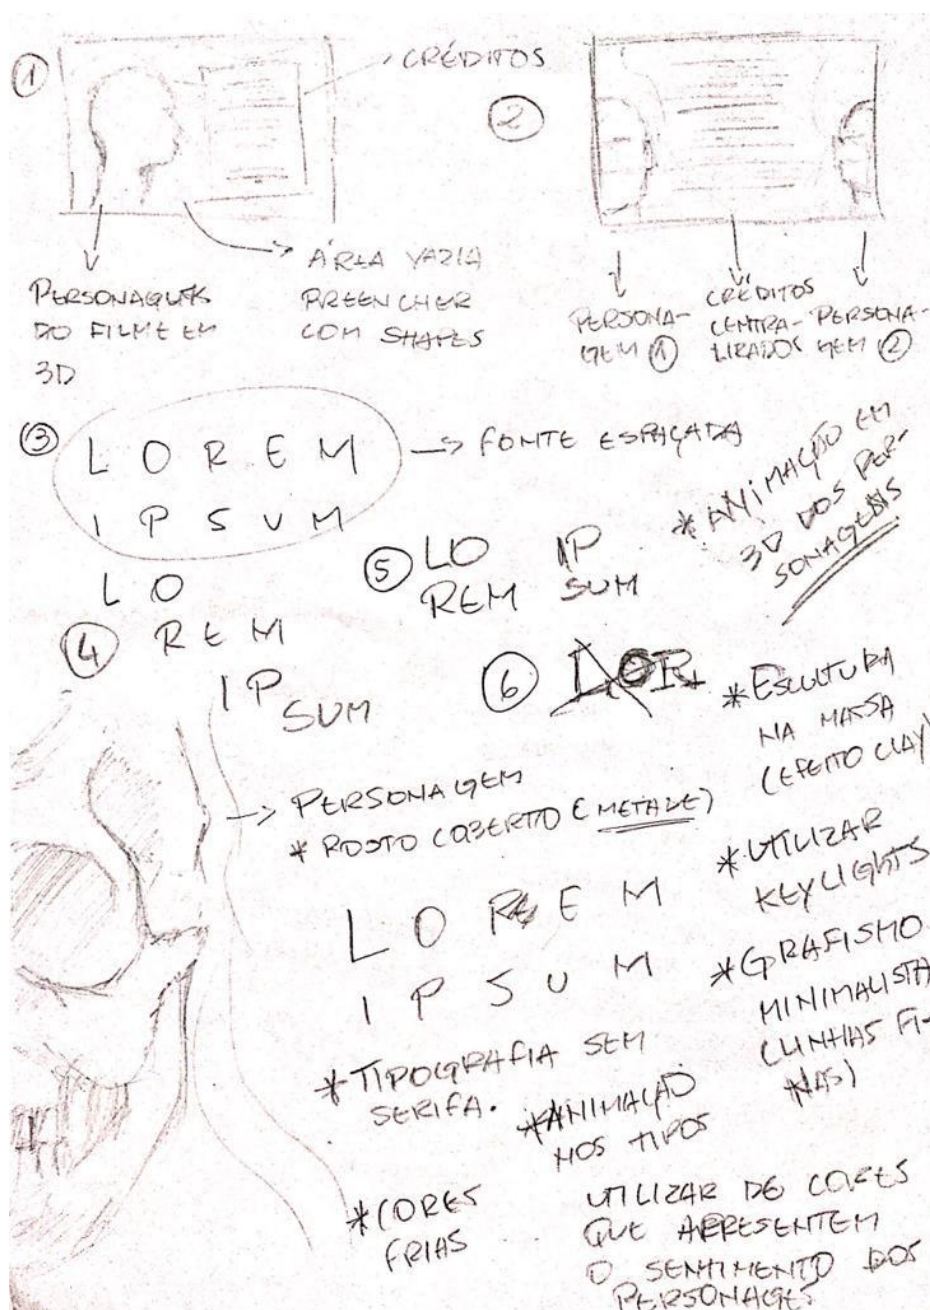 ①
CRÉDITOS
②
PERSONAGENS
DO FILME EM
3D
ÁREA VAZIA
PREENCHER
COM SHAPES
PERSONA-
GEM ①
CRÉDITOS
CENTRA-
LIZADOS
PERSONA-
GEM ②
③
LOREM
IPSUM
FONTE ESPAÇADA
* ANIMAÇÃO EM
3D DOS PER-
SONAGENS
④
LO
REM
IP
SUM
⑤
LO IP
REM SUM
⑥ LOR
* ESCULTURA
NA MASSA
(EFEITO CLAY)
PERSONAGEM
* ROSTO COBERTO (METADE)
* UTILIZAR
KEYLIGHTS
LOREM
IPSUM
* GRAFISMO
MINIMALISTA
(LINHAS FI-
NAS)
* TIPOGRAFIA SEM
SERIFA.
* ANIMAÇÃO
NOS TIPOS
* CORES
FRIAS
UTILIZAR DE CORES
QUE APRESENTEM
O SENTIMENTO DOS
PERSONAGES